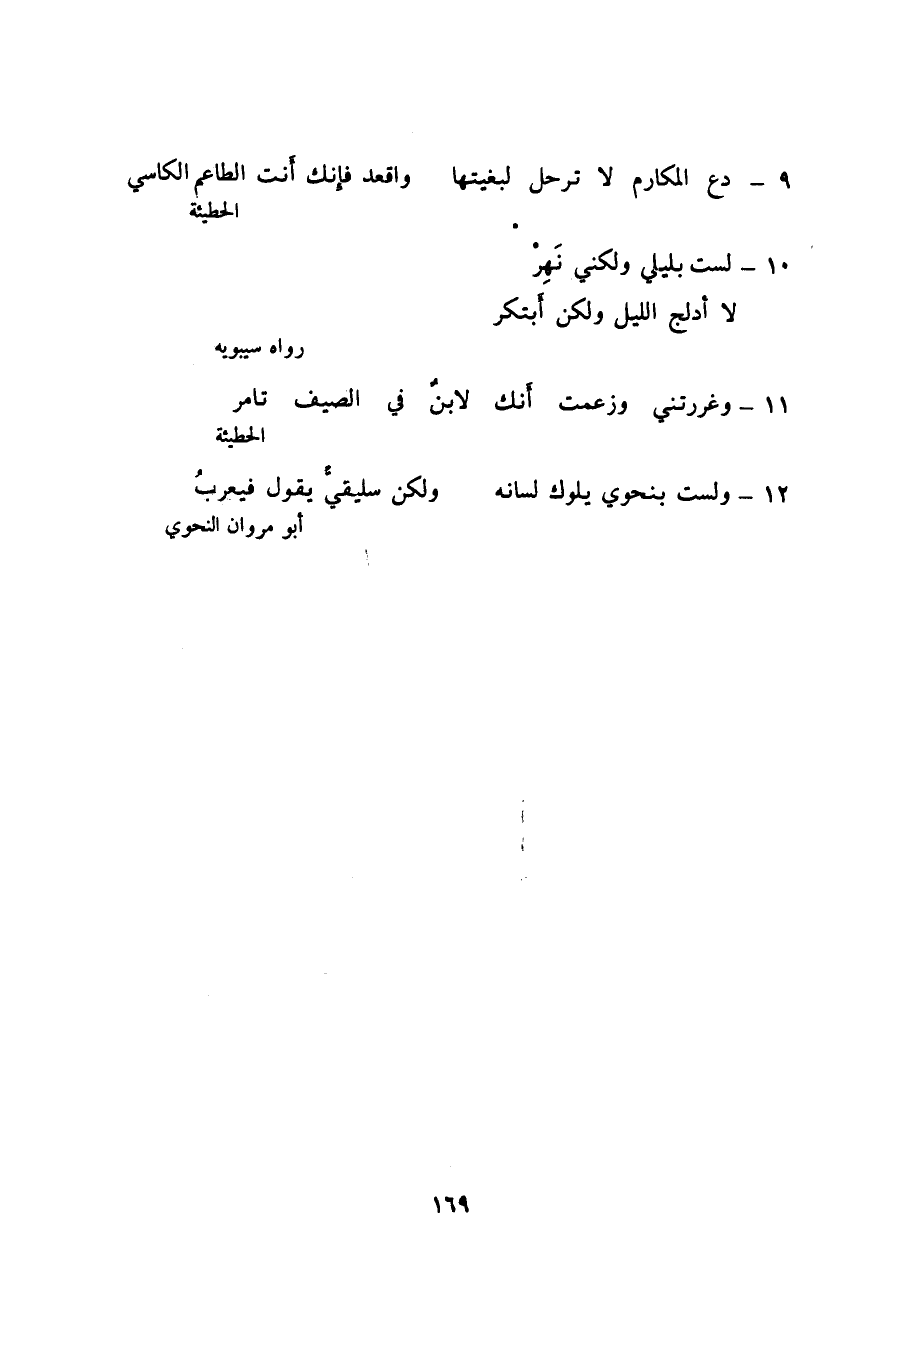 ٩ – دع المكارم لا ترحل لبغيتها واقعد فإنك أنت الطاعم الكاسي
الحطيئة
١٠ – لست بليلي ولكني نَهِرْ
لا أدلج الليل ولكن أبتكر
رواه سيبويه
١١ – وغررتني وزعمت أنك لابنٌ في الصيف تامر
الحطيئة
١٢ – ولست بنحوي يلوك لسانه ولكن سليقيٌّ يقول فيعربُ
أبو مروان النحوي
١٦٩